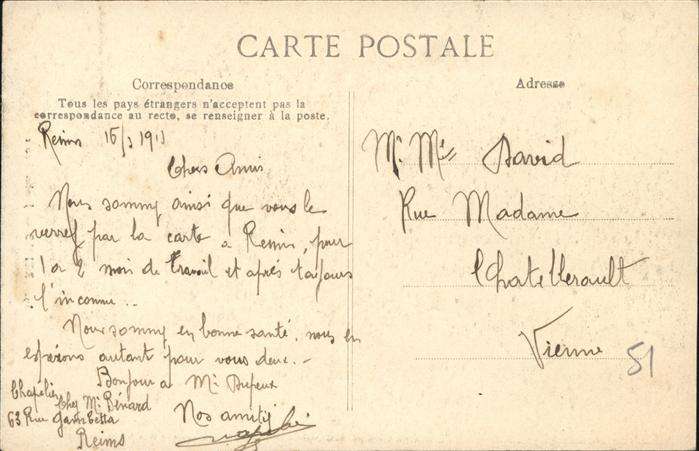 CARTE POSTALE
Correspondance
Tous les pays étrangers n'acceptent pas la
correspondance au recto, se renseigner à la poste.
Reims 15/3 1911
Chers Amis
Nous sommes ainsi que vous le
verrez par la carte a Reims, pour
1 a 2 mois de travail et après toujours
l'inconnu..
Nous sommes en bonne santé, nous en
espérons autant pour vous deux. -
Bonjour a Mr
Nos amitiés
Chapelier
Chez Mr Bénard
63 Rue Gambetta
Reims
Adresse
Mr Mme David
Rue Madame
Chatellerault
Vienne
51